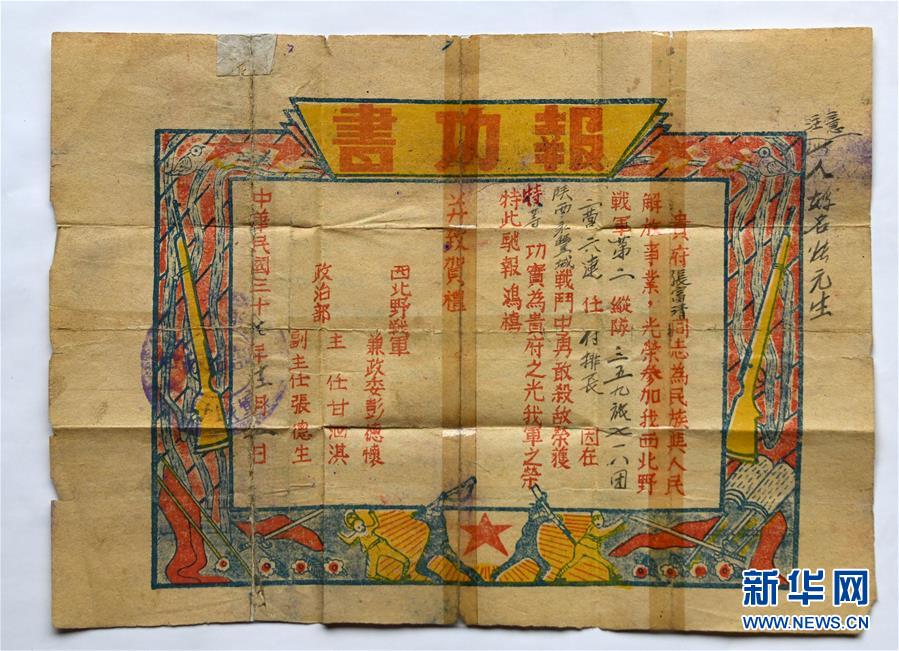 報功書
貴府張富清同志為民族與人民
解放事業，光榮參加我西北野
戰軍第二縱隊三五九旅七一八团
二营六連任付排長 因在
陝西永豐城戰鬥中勇敢殺敵榮獲
特等功實為貴府之光我軍之榮
特此馳報鴻禧
并致賀禮
西北野戰軍
兼政委彭德懷
政治部
主任甘泗淇
副主任張德生
中華民國三十七年十二月 日
注意
人姓名 元生
新华网
WWW.NEWS.CN